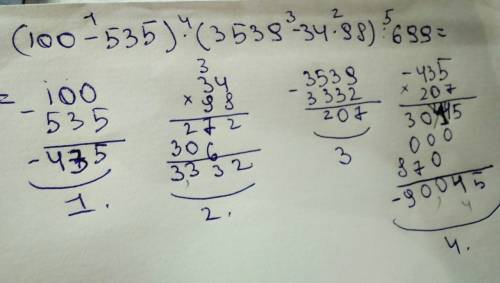 (100 - 535) · (3539 - 34 · 98) : 699 =
1 4 3 2 5
= - 100
535
- 435
1.
3
34
× 98
272
306
3332
2.
- 3539
3332
207
3
- 435
× 207
3045
000
870
- 90045
4.